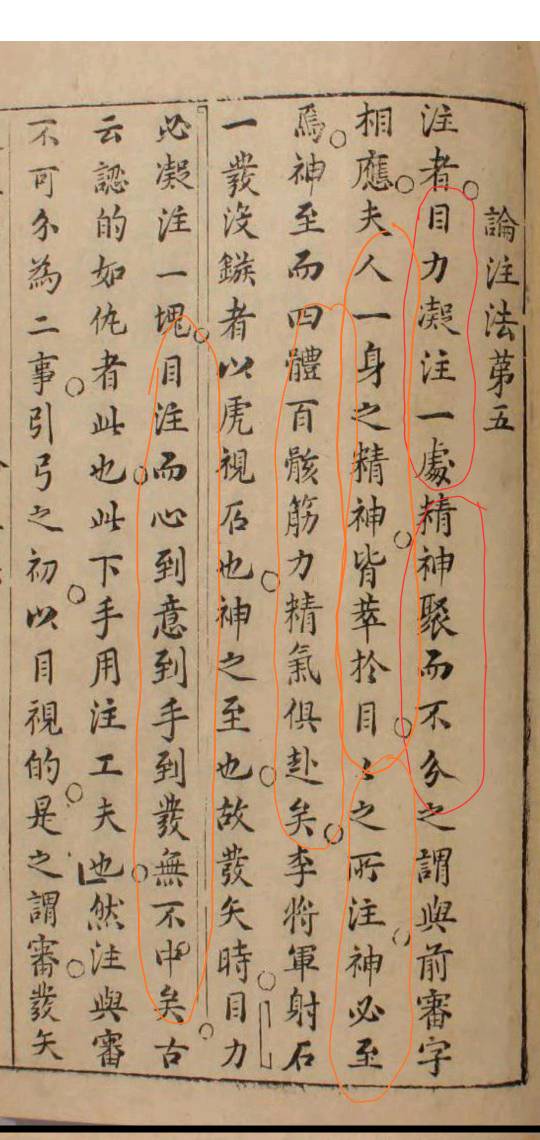 論注法第五
注者目力凝注一處精神聚而不分之謂與前審字
相應夫人一身之精神皆萃於目々之所注神必至
焉神至而四體百骸筋力精氣俱赴矣李將軍射石
一發沒鏃者以虎視石也神之至也故發矢時目力
必凝注一塊目注而心到意到手到發無不中矣古
云認的如仇者此也此下手用注工夫也然注與審
不可分為二事引弓之初以目視的是之謂審發矢